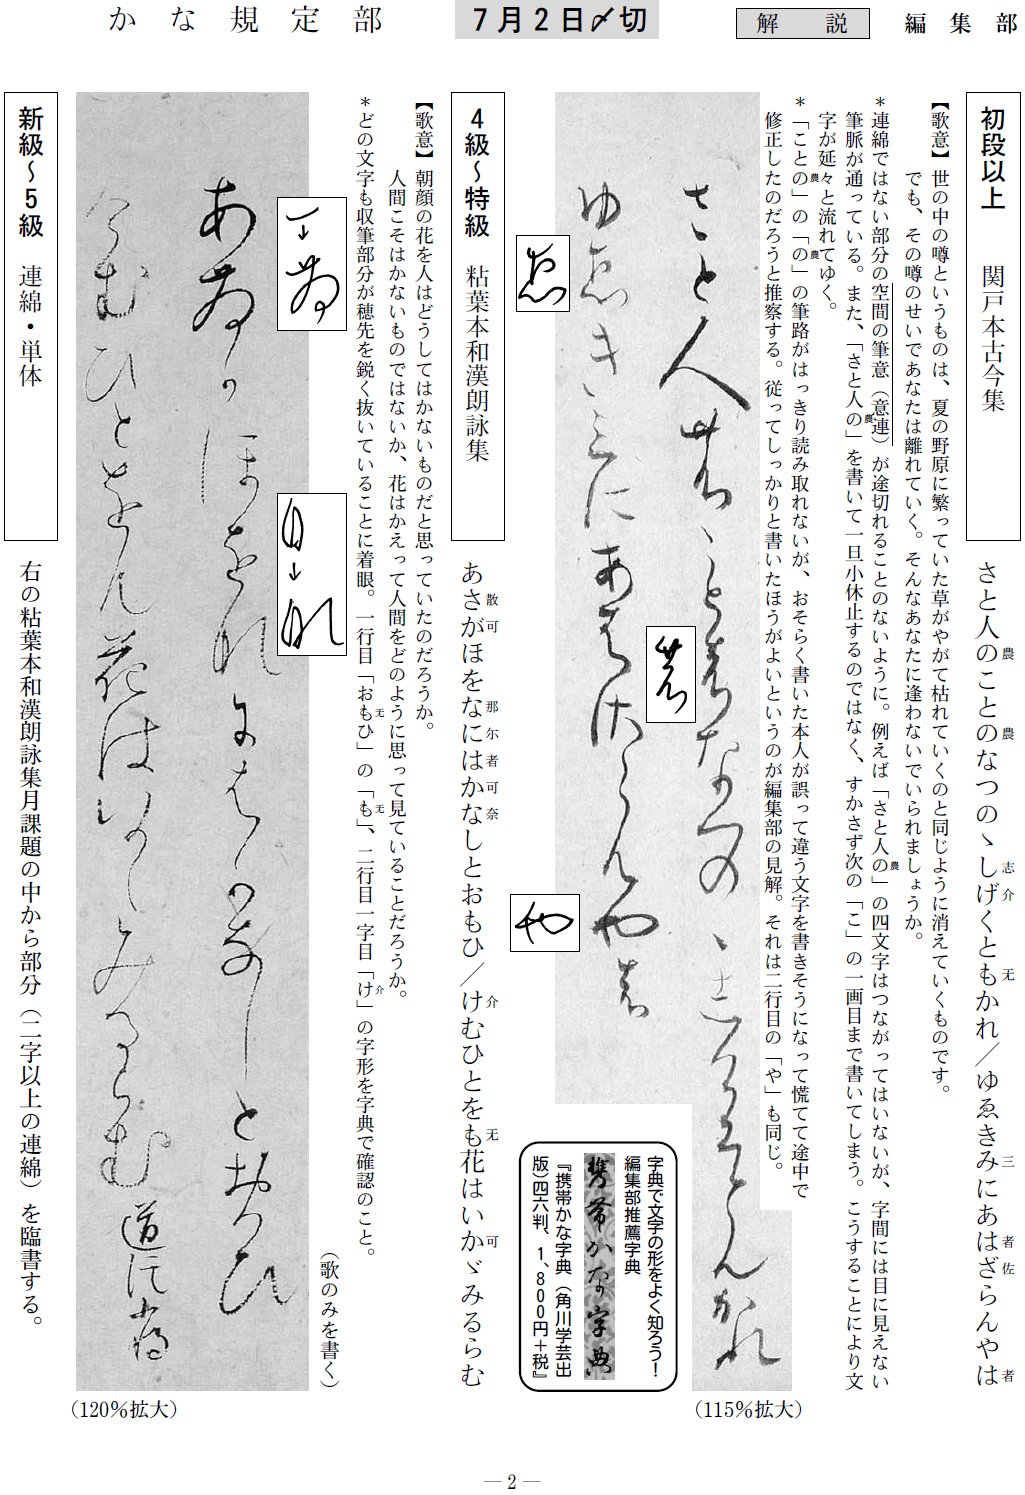 かな規定部
7月2日〆切
解説
編集部
初段以上 関戸本古今集
さと人のことのなつのヽしげくともかれ／ゆゑきみにあはざらんやは
農 農 志 介 无 三 者 佐 者
【歌意】世の中の噂というものは、夏の野原に繁っていた草がやがて枯れていくのと同じように消えていくものです。
でも、その噂のせいであなたは離れていく。そんなあなたに逢わないでいられましょうか。
＊連綿ではない部分の空間の筆意（意連）が途切れることのないように。例えば「さと人の農」の四文字はつながってはいないが、字間には目に見えない
筆脈が通っている。また、「さと人の農」を書いて一旦小休止するのではなく、すかさず次の「こ」の一画目まで書いてしまう。こうすることにより文
字が延々と流れてゆく。
＊「ことの農」の「の農」の筆路がはっきり読み取れないが、おそらく書いた本人が誤って違う文字を書きそうになって慌てて途中で
修正したのだろうと推察する。従ってしっかりと書いたほうがよいというのが編集部の見解。それは二行目の「や」も同じ。
（115％拡大）
字典で文字の形をよく知ろう！
編集部推薦字典
携帯かな字典
『携帯かな字典（角川学芸出
版）四六判、1、800円＋税』
4級～特級 粘葉本和漢朗詠集
あさがほをなにはかなしとおもひ／けむひとをも花はいかゞみるらむ
散 可 那 尓 者 可 奈 介 无 可
【歌意】朝顔の花を人はどうしてはかないものだと思っていたのだろうか。
人間こそはかないものではないか、花はかえって人間をどのように思って見ていることだろうか。
＊どの文字も収筆部分が穂先を鋭く抜いていることに着眼。一行目「おも无ひ」の「も无」、二行目一字目「け介」の字形を字典で確認のこと。
（歌のみを書く）
（120％拡大）
新級～5級 連綿・単体
右の粘葉本和漢朗詠集月課題の中から部分（二字以上の連綿）を臨書する。
― 2 ―